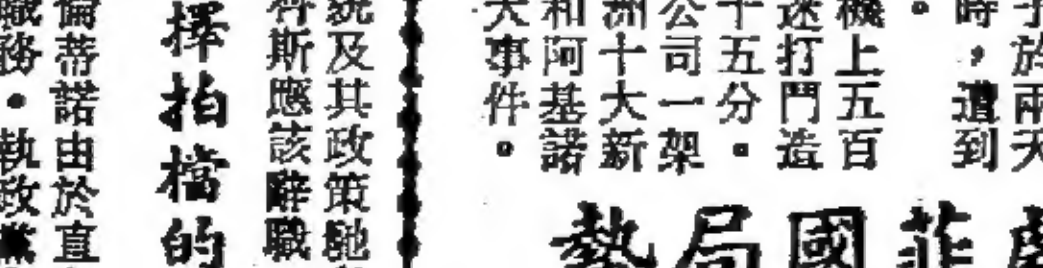 於兩天
時，遭到
。
機上五百
迷打鬥造
五分。
公司一架
洲十大新
和阿基諾
大事件。
菲國局勢
統及其政策馳
斯應該辭職
擇拍檔的
倫蒂諾由於直
職務。執政黨